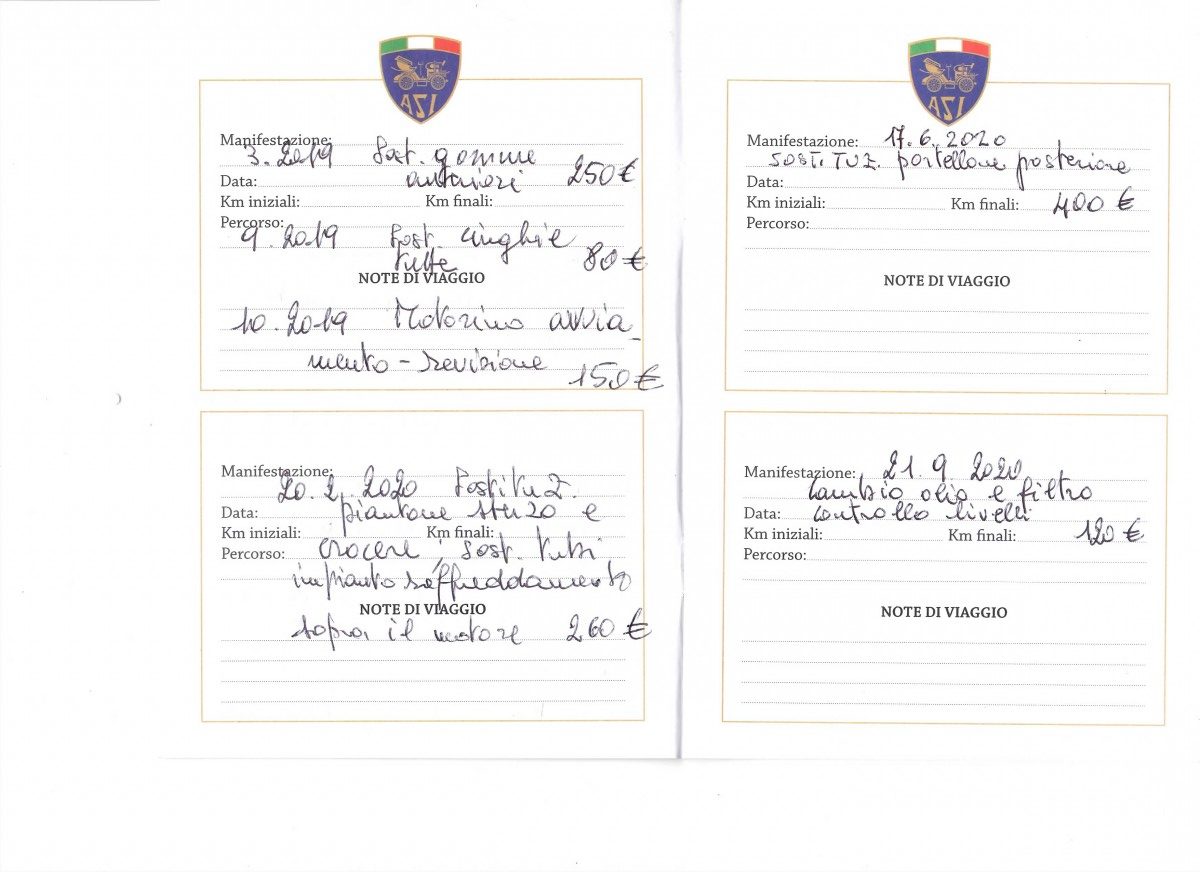 ASI
Manifestazione:
3. 2019 Sost. gomme
Data: anteriori 250 €
Km iniziali: Km finali:
Percorso:
9. 2019 Sost. cinghie
tutte 80 €
NOTE DI VIAGGIO
10. 2019 Motorino avvia
mento - revisione
150 €
Manifestazione:
20. 2. 2020 Sostituz.
Data: piantone sterzo e
Km iniziali: Km finali:
Percorso: crocere, sost. tubi
impianto raffreddamento
NOTE DI VIAGGIO
sopra il motore 260 €
ASI
Manifestazione: 17. 6. 2020
SOSTITUZ. portellone posteriore
Data:
Km iniziali: Km finali: 400 €
Percorso:
NOTE DI VIAGGIO
Manifestazione: 21 9 2020
Cambio olio e filtro
Data: controllo livelli
Km iniziali: Km finali: 120 €
Percorso:
NOTE DI VIAGGIO